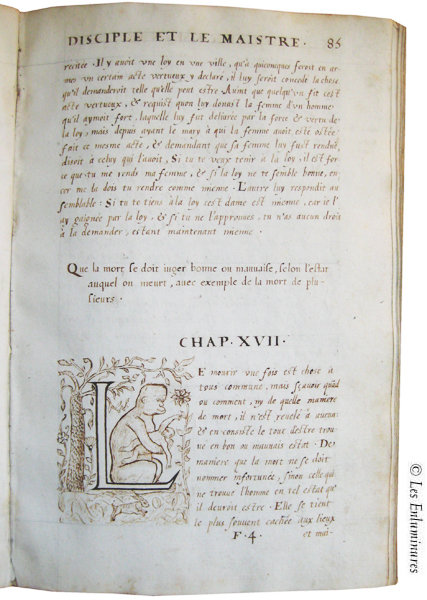 DISCIPLE ET LE MAISTRE · 85
recitée · Il y auoit vne loy en vne ville, qu'à quiconques feroit en ar-
mes vn certain acte vertueux y declaré, il luy seroit concedé la chose
qu'il demanderoit telle qu'elle peut estre. Auint que quelqu'vn fit cest
acte vertueux, & requist qu'on luy donast la femme d'vn homme
qu'il aymoit fort, laquelle luy fut deliurée par la force & vertu de
la loy, mais depuis ayant le mary à qui la femme auoit esté ostée
fait ce mesme acte, & demandant que sa femme luy fust rendue,
disoit à celuy qui l'auoit, Si tu te veux tenir à la loy, il est for-
ce que tu me rends ma femme, & si la loy ne te semble bonne, en-
cor me la dois tu rendre comme mienne · L'autre luy respondit au
semblable : Si tu te tiens à la loy cest dame est mienne, car ie l'
ay gaignée par la loy, & si tu ne l'approuues, tu n'as aucun droit
à la demander, estant maintenant mienne ·
Que la mort se doit iuger bonne ou mauuaise, selon l'estat
auquel on meurt, auec exemple de la mort de plu-
sieurs ·
CHAP · XVII ·
LE mourir vne fois est chose à
tous commune, mais sçauoir quãd
ou comment, ny de quelle maniere
de mort, il n'est reuelé à aucun:
& en consiste le tout d'estre trou-
ué en bon ou mauuais estat · De
maniere que la mort ne se doit
nommer infortunée, sinon celle qui
ne trouue l'homme en tel estat qu'
il deuroit estre · Elle se tient
le plus souuent cachée aux lieux
F · 4 · et mai-
© Les Enluminures